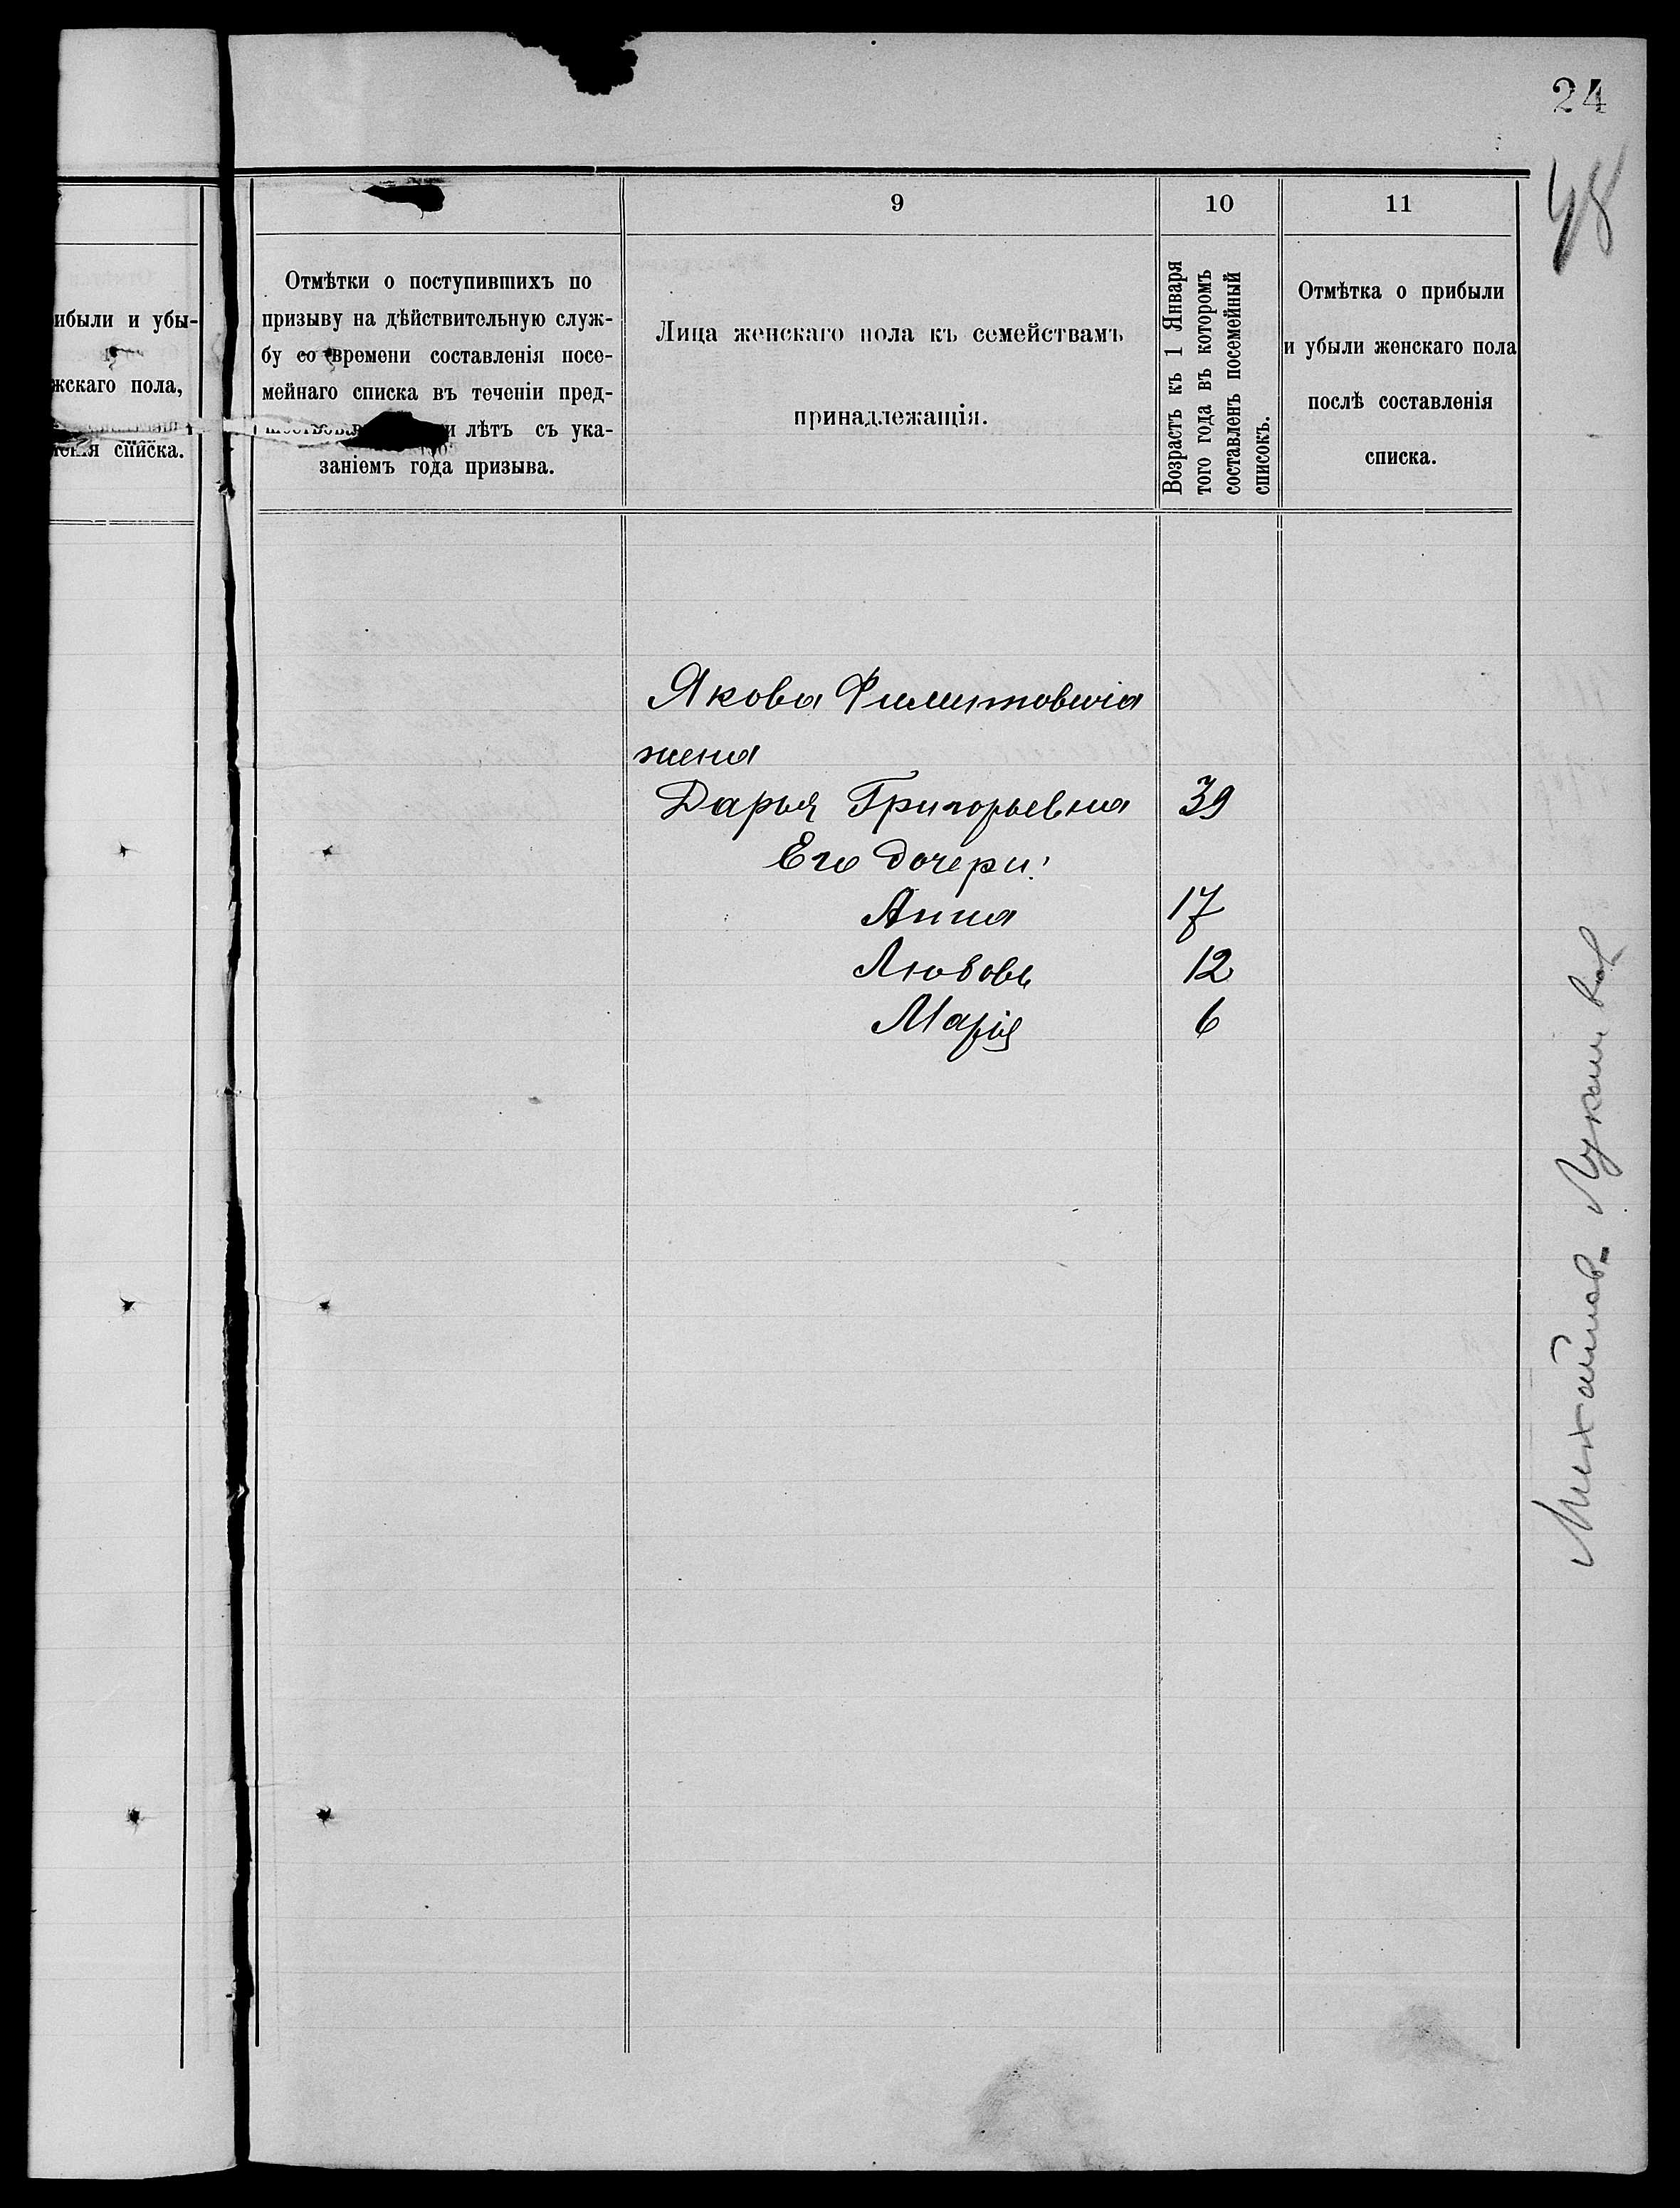 24
48
ибыли и убы-
жскаго пола,
списка.
Отмѣтки о поступившихъ по
призыву на дѣйствительную служ-
бу со времени составленія посе-
мейнаго списка въ теченіи пред-
лѣтъ съ ука-
заніемъ года призыва.
9
Лица женскаго пола къ семействамъ
принадлежащія.
10
Возрастъ къ 1 Января
того года въ которомъ
составленъ посемейный
списокъ.
11
Отмѣтка о прибыли
и убыли женскаго пола
послѣ составленія
списка.
Якова
жена
Дарья Григорьевна 39
Его дочери:
Анна 17
Любовь 12
Марія 6